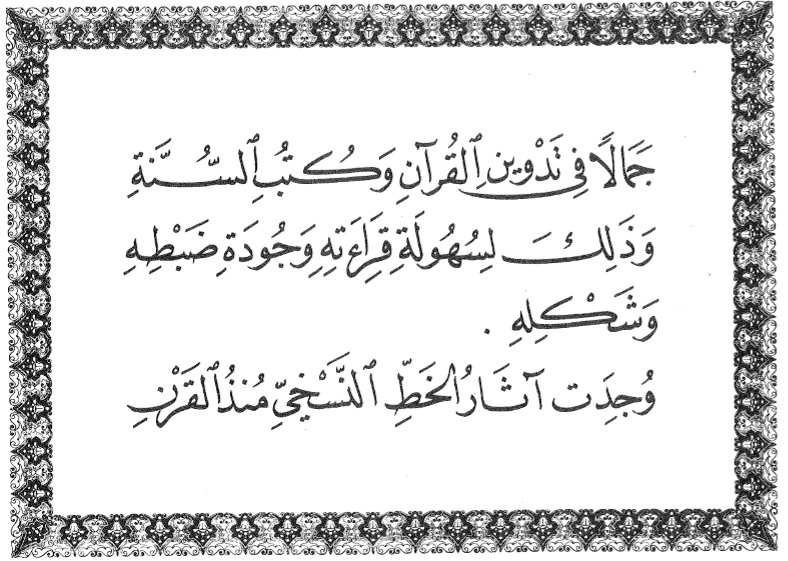 جَمَالًا فِي تَدْوِينِ ٱلْقُرآنِ وَكُتُبِ ٱلسُّنَّةِ
وَذَلِكَ لِسُهُولَةِ قِرَاءَتِهِ وَجُودَةِ ضَبْطِهِ
وَشَكْلِهِ .
وُجِدَت آثَارُ الخَطِّ ٱلنَّسْخِيِّ مُنذُ ٱلقَرْنِ